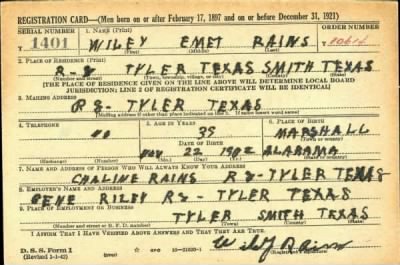 REGISTRATION CARD—(Men born on or after February 17, 1897 and on or before December 31, 1921)
SERIAL NUMBER 1. NAME (Print) ORDER NUMBER
1401 WILEY EMET RAINS
(First) (Middle) (Last)
2. PLACE OF RESIDENCE (Print)
R 8 TYLER TEXAS SMITH TEXAS
(Number and street) (Town, township, village, or city) (County) (State)
[THE PLACE OF RESIDENCE GIVEN ON THE LINE ABOVE WILL DETERMINE LOCAL BOARD
JURISDICTION; LINE 2 OF REGISTRATION CERTIFICATE WILL BE IDENTICAL]
3. MAILING ADDRESS
R 8 - TYLER TEXAS
[Mailing address if other than place indicated on line 2. If same insert word same]
4. TELEPHONE 5. AGE IN YEARS 6. PLACE OF BIRTH
NO 39 MARSHALL
DATE OF BIRTH (Town or county)
NOV 22 1902 ALABAMA
(Exchange) (Number) (Mo.) (Day) (Yr.) (State or country)
7. NAME AND ADDRESS OF PERSON WHO WILL ALWAYS KNOW YOUR ADDRESS
RAINS R 8 - TYLER TEXAS
8. EMPLOYER'S NAME AND ADDRESS
GENE RILEY R 8 - TYLER TEXAS
9. PLACE OF EMPLOYMENT OR BUSINESS
TYLER SMITH TEXAS
(Number and street or R. F. D. number) (Town) (County) (State)
I AFFIRM THAT I HAVE VERIFIED ABOVE ANSWERS AND THAT THEY ARE TRUE.
D. S. S. Form 1
(Revised 1-1-42) GPO 16—21630-1 Wiley Rains